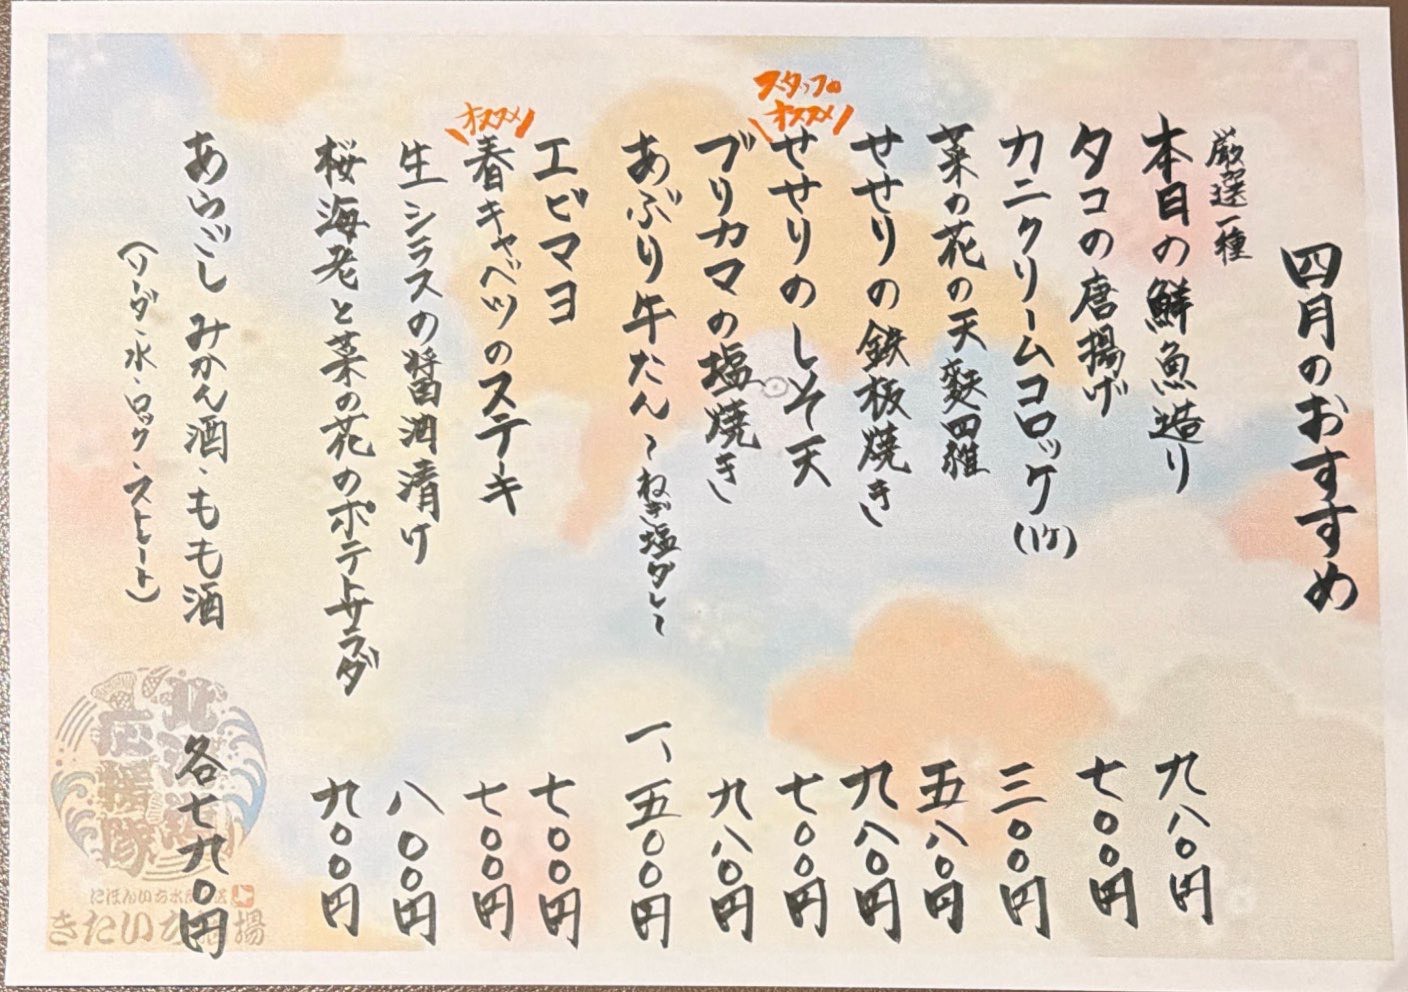 四月のおすすめ
厳選一種
本日の鮮魚造り 九八〇円
タコの唐揚げ 七〇〇円
カニクリームコロッケ(1ケ) 三〇〇円
菜の花の天麩羅 五八〇円
せせりの鉄板焼き 九八〇円
スタッフの
オススメ
せせりのしそ天 七〇〇円
ブリカマの塩焼き 九八〇円
あぶり牛たん~ねぎ塩ダレ~ 一、五〇〇円
エビマヨ 七〇〇円
オススメ
春キャベツのステーキ 七〇〇円
生シラスの醤油漬け 八〇〇円
桜海老と菜の花のポテトサラダ 九〇〇円
あらごしみかん酒・もも酒 各七九〇円
(ソーダ・水・ロック・ストレート)
応援隊
きたいち酒場